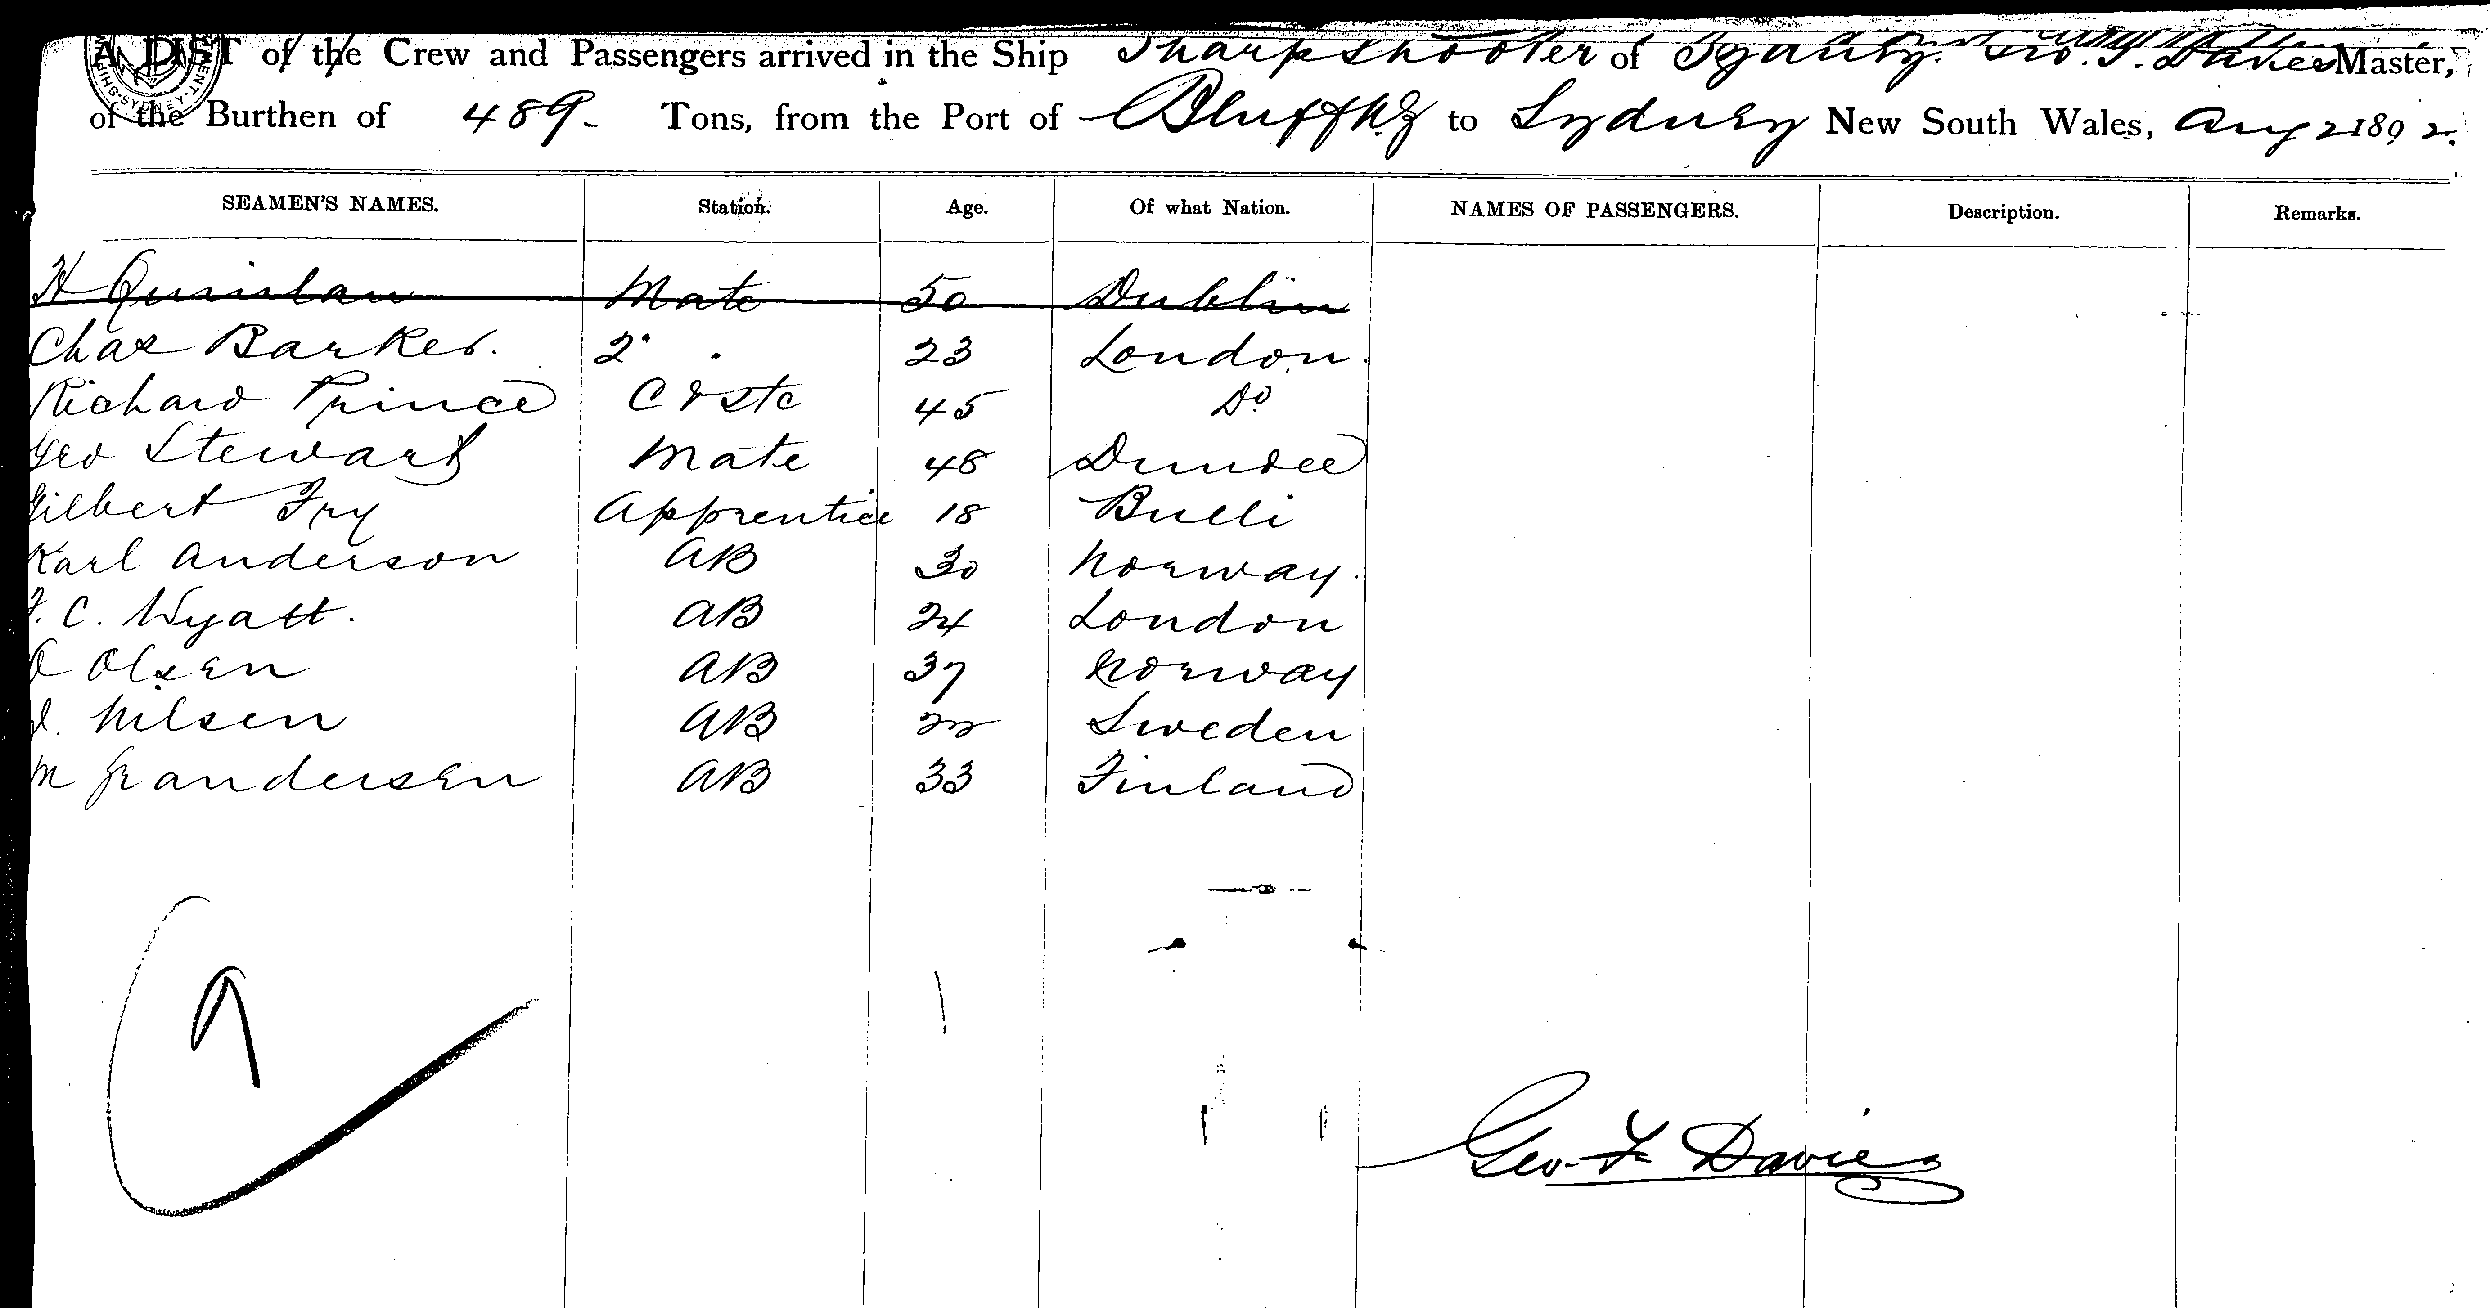 A LIST of the Crew and Passengers arrived in the Ship Sharpshooter of Sydney. Geo. F. Davies Master,
of the Burthen of 489- Tons, from the Port of Bluff N.Z to Sydney New South Wales, Aug 2 1892.
SEAMEN'S NAMES. Station. Age. Of what Nation. NAMES OF PASSENGERS. Description. Remarks.
H Quinlan Mate 50 Dublin
Chas Barker. 2d . 23 London.
Richard Prince C & Std 45 Do
Geo Stewart Mate 48 Dundee
Gilbert Fry Apprentice 18 Bulli
Karl Anderson AB 30 Norway.
F. C. Wyatt. AB 24 London
O Olsen AB 37 Norway
Nilsen AB 22 Sweden
M Grandersen AB 33 Finland
9
Geo. F Davies